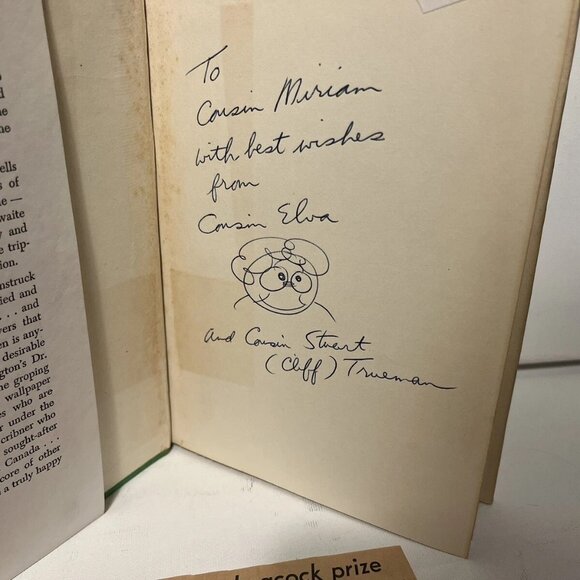 ells
s of
ne —
waite
y and
e trip-
ion.
nstruck
ied and
. . . and
vers that
en is any-
desirable
ngton's Dr.
he groping
wallpaper
es who are
r under the
cribner who
sought-after
Canada . . .
core of other
s a truly happy
To
Cousin Miriam
with best wishes
from
Cousin Elva
and Cousin Stuart
(Cliff) Trueman
acock prize